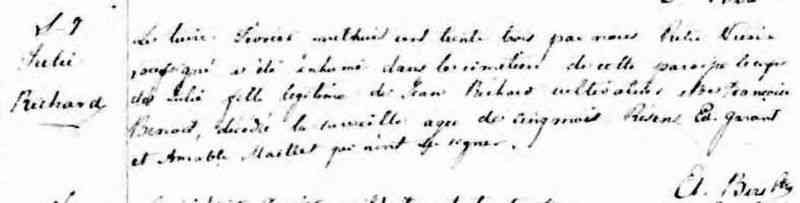 S 9
Julie
Richard
Le trois Février mil huit cent trente trois par nous Prêtre Vicaire
soussigné a été inhumé dans le cimetière de cette paroisse le corps
de Julie fille légitime de Jean Richard cultivateur et de Françoise
Benoit, décédée la surveille agée de cinq mois Présens Ed. Garant
et Amable Maillet qui n'ont su signer.